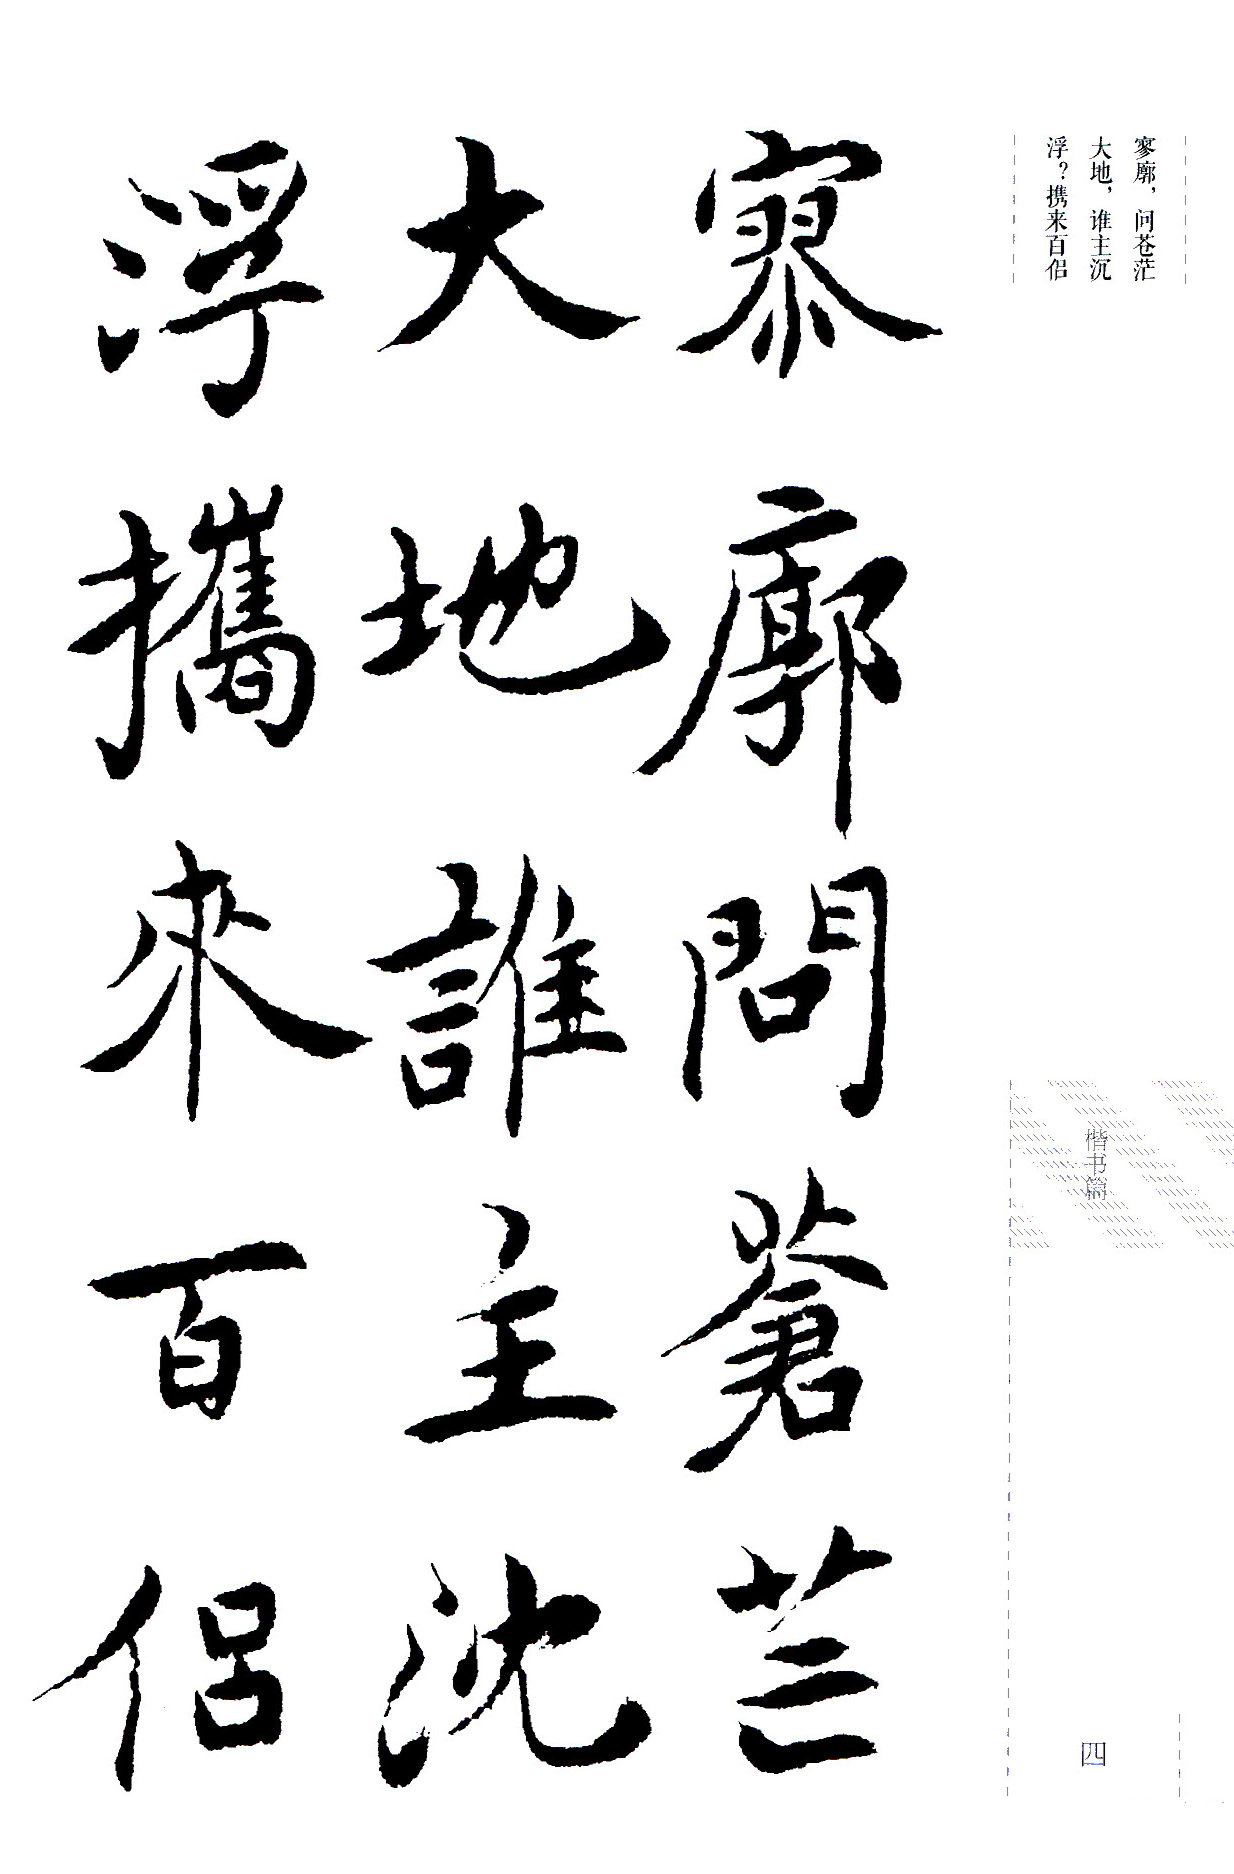 寥廓，问苍茫
大地，谁主沉
浮？携来百侣
楷书篇
四
寥廓問蒼芒
大地誰主沈
浮攜來百侶